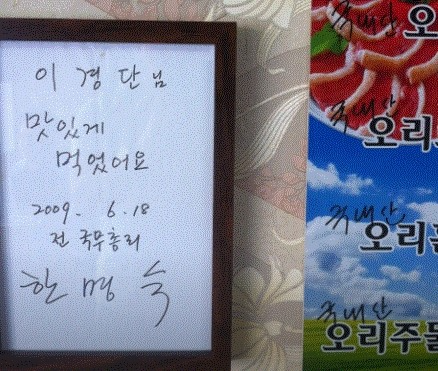 이경단님
맛있게
먹었어요
2009. 6.18
전 국무총리
한명숙
국내산
오
국내산
오리
국내산
오리
국내산
오리주물